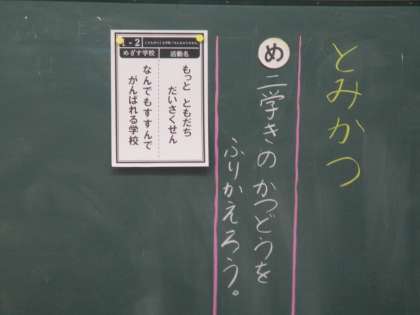 とみかつ
め
二学きの かつどうを
ふりかえろう。
1-2
活動名
もっと ともだち
だいさくせん
めざす学校
なんでもすすんで
がんばれる学校